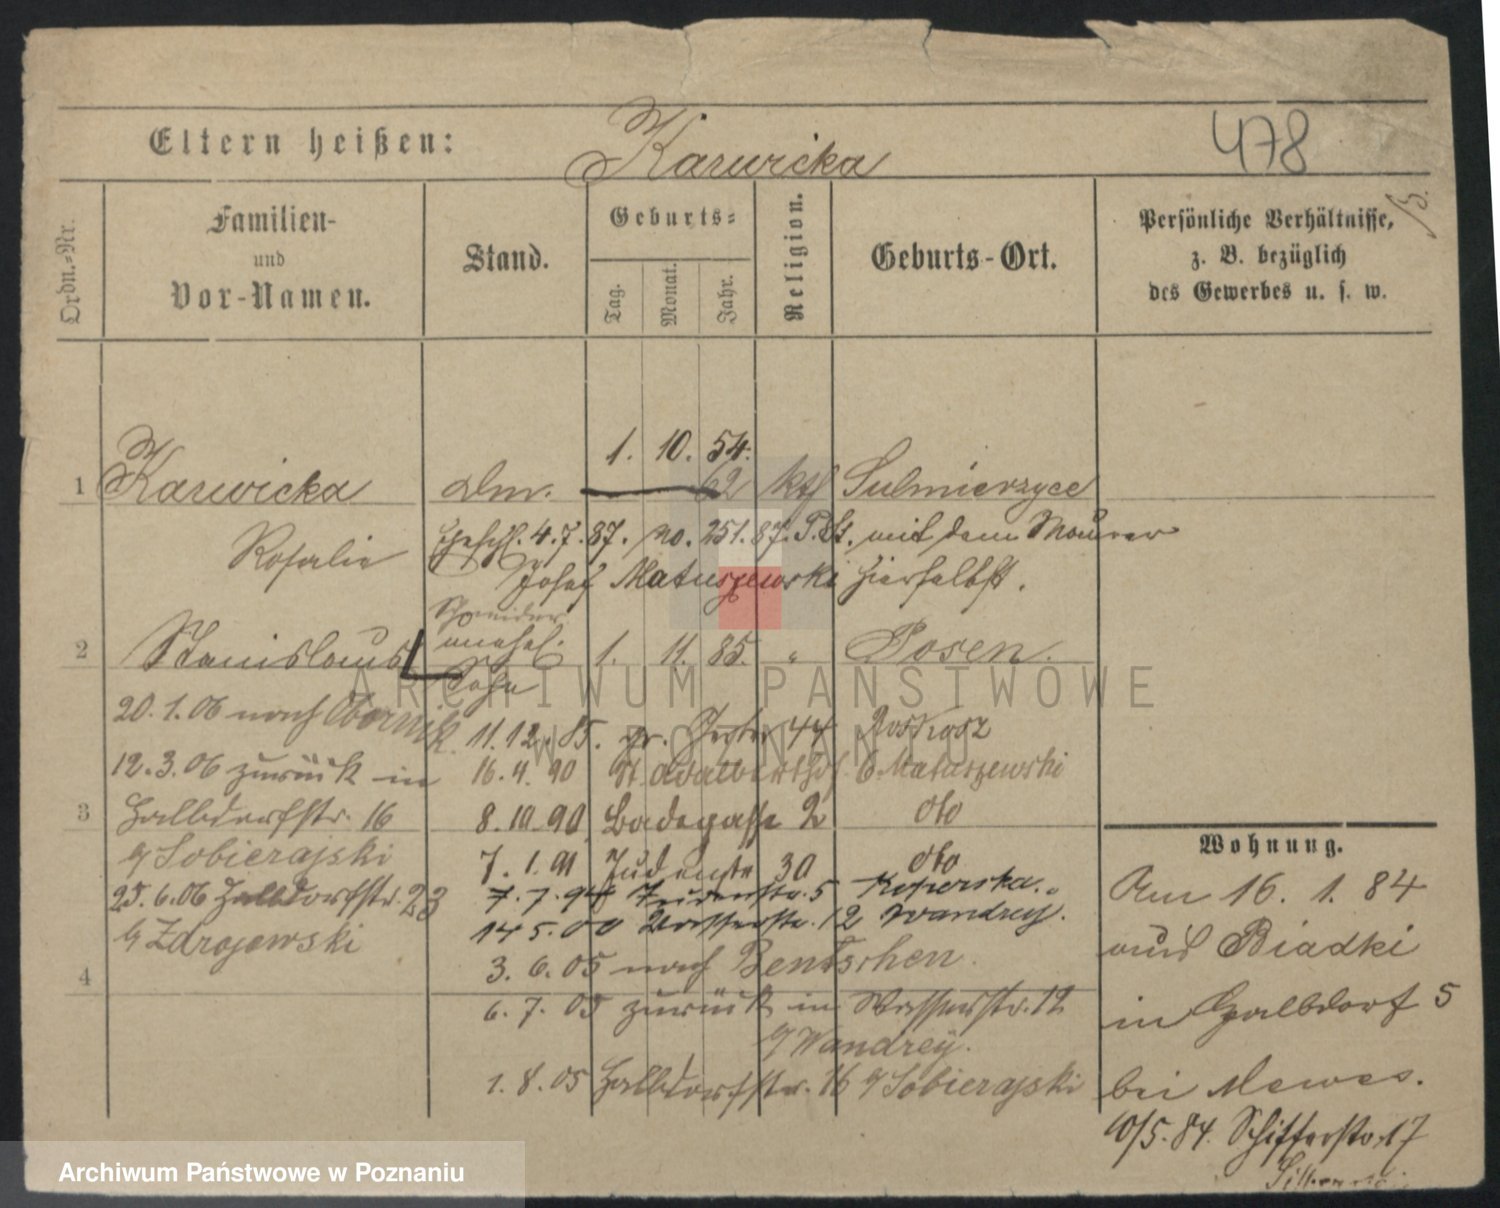 Eltern heißen: Karwicka 478
Ordn.-Nr.
Familien- und Vor-Namen.
Stand.
Geburts-
Tag. Monat. Jahr.
Religion.
Geburts-Ort.
Persönliche Verhältnisse,
z. B. bezüglich
des Gewerbes u. s. w.
1. 10. 54.
1 Karwicka Dm. 62 kth Sulmierzyce
Rosalie
Eheschl. 4.7.87. No. 251.87. P. St. mit dem Maurer
Josef Matuszewski hierselbst.
Schneider
2 Stanislaus unehel. 1. 11. 85. " Posen.
Sohn
20.1.06 nach Obornik.
12.3.06 zurück in
3 Halbdorfstr. 16
b/ Sobierajski
25.6.06 Halbdorfstr. 23
b/ Zdrojewski
4
11.12.85. gr. Gerber 44
16.4.90 St. Adalbertstr. b. Matuszewski
8.10.90 Badegasse 2 dto
7.1.91 Judenstr 30 dto
7.7.94 Judenstr. 5 Koperska.
14 5.00 Wasserstr. 12 Wandrey.
3.6.05 nach Bentschen.
6.7.05 zurück in Wasserstr. 12
b/ Wandrey.
1.8.05 Halbdorfstr. 16 b/ Sobierajski
Wohnung.
Am 16. 1. 84
aus Biadki
in Halbdorf 5
bei Mewes.
10/5. 84. Schifferstr. 17
ARCHIWUM PAŃSTWOWE
W POZNANIU
Archiwum Państwowe w Poznaniu